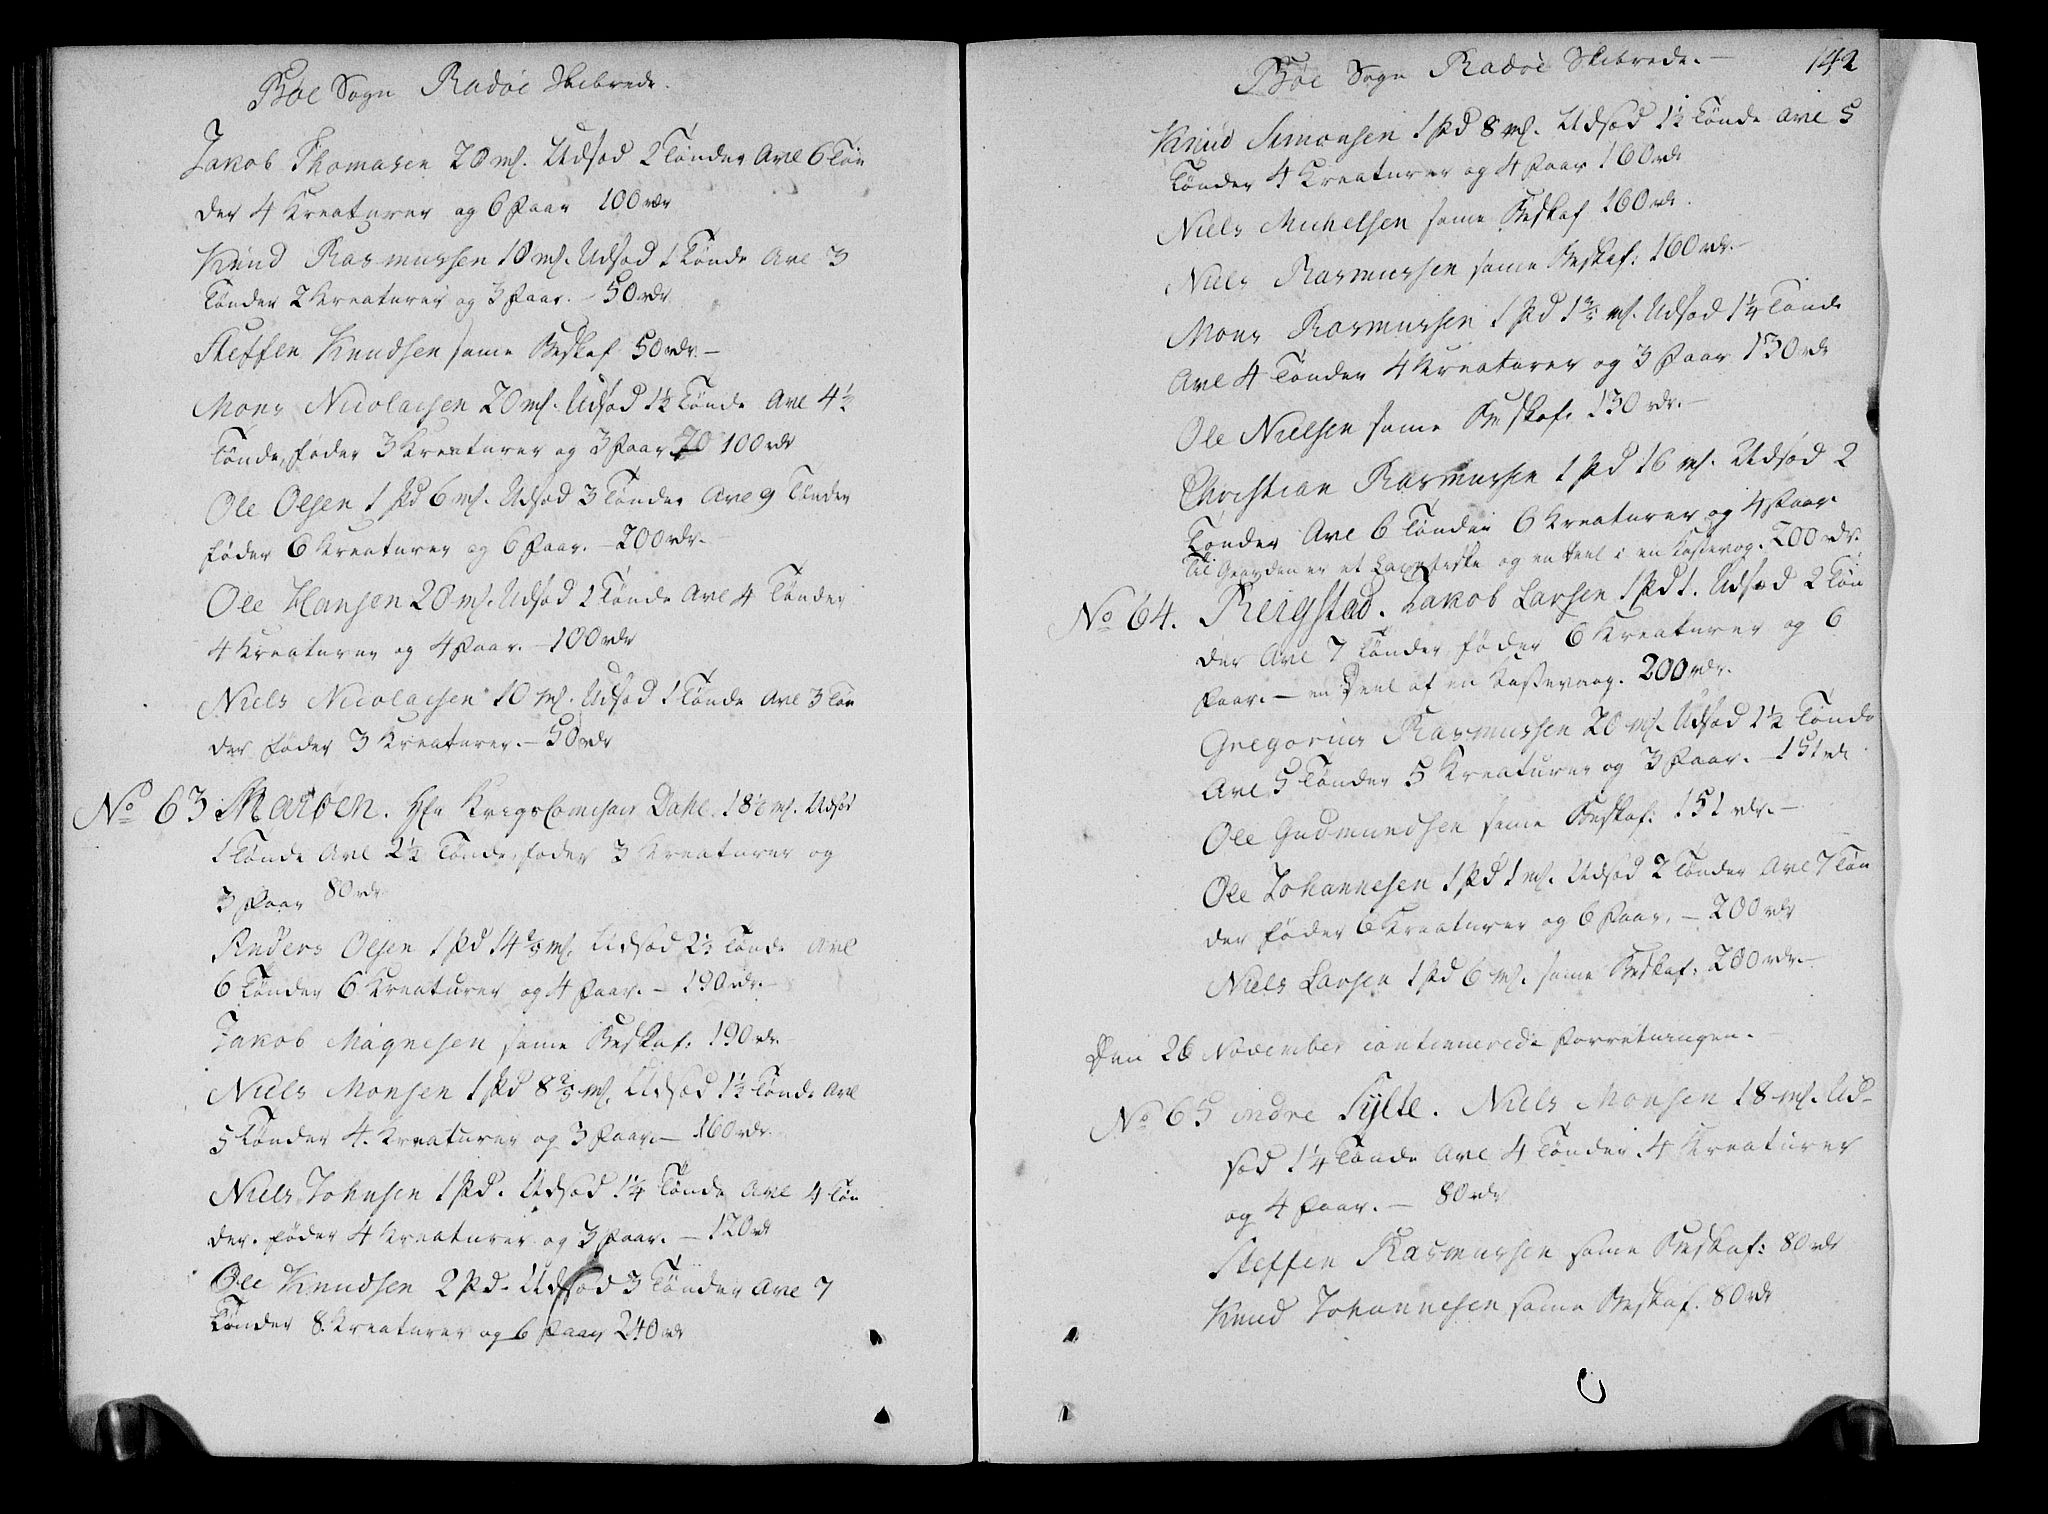 Bøe Sogn Radøe Skibrede.
Jakob Thomasen 20 mk. Udsæd 2 Tønder Avl 6 Tøn
der 4 Kreaturer og 6 Faar 100 rdr
Knud Rasmussen 10 mk. Udsæd 1 Tønde Avl 3
Tønder 2 Kreaturer og 3 Faar. – 50 rdr
Steffen Knudsen same Beskaf 50 rdr. –
Mons Nicolaisen 20 mk. Udsæd 1½ Tønde Avl 4½
Tønde, føder 3 Kreaturer og 3 Faar 100 rdr
Ole Olsen 1 Pd 6 mk. Udsæd 3 Tønder Avl 9 Tønder
føder 6 Kreaturer og 6 Faar. – 200 rdr. –
Ole Hansen 20 mk. Udsæd Tønde Avl 4 Tønder
4 Kreaturer og 4 Faar. – 100 rdr
Niels Nicolaisen 10 mk. Udsæd 1 Tønde Avl 3 Tøn
der føder 3 Kreaturer. – 50 rdr
No 63 Marøen. Hr KrigsComisair Dahl. mk. Udsæd
1 Tønde Avl 2½ Tønde, føder 3 Kreaturer og
3 Faar 80 rdr
Anders Olsen 1 Pd 14⅔ mk. Udsæd 2½ Tønde Avl
6 Tønder 6 Kreaturer og 4 Faar. – 190 rdr. –
Jakob Magnesen same Beskaf: 190 rdr.
Niels Monsen 1 Pd 8⅔ mk. Udsæd 1½ Tønde Avl
5 Tønder 4 Kreaturer og 3 Faar. – 160 rdr
Niels Johnsen 1 Pd. Udsæd 1¼ Tønde Avl 4 Tøn
der. føder 4 Kreaturer og 3 Faar. – 120 rdr
Ole Knudsen 2 Pd. Udsæd 3 Tønder Avl 7
Tønder 8 Kreaturer og 6 Faar 240 rdr
Bøe Sogn Radøe Skibrede. – 142
Knud Simonsen 1 Pd 8 mk. Udsæd 1½ Tønde Avl 5
Tønder 4 Kreaturer og 4 Faar 160 rdr
Niels Michelsen same Beskaf 160 rdr.
Niels Rasmussen same Beskaf: 160 rdr. –
Mons Rasmussen 1 Pd 1⅔ mk. Udsæd 1¼ Tønde
Avl 4 Tønder 4 Kreaturer og 3 Faar 130 rdr
Ole Nielsen same Beskaf. 130 rdr. –
Christian Rasmussen 1 Pd 16 mk. Udsæd 2
Tønder Avl 6 Tønder 6 Kreaturer og 4 Faar
Til Gaarden er et Laxefiske og en Deel i en Kastevog. 200 rdr.
No 64. Reigstad. Jakob Larsen 1 Pd 1. Udsæd 2 Tøn
der Avl 7 Tønder, føder 6 Kreaturer og 6
Faar. – en Deel af en Kastevaag. 200 rdr.
Gregorius Rasmussen 20 mk. Udsæd 1½ Tønde
Avl 5 Tønder 5 Kreaturer og 3 Faar. – 151 rdr
Ole Gudmundsen same Beskaf: 151 rdr. –
Ole Johannesen 1 Pd 1 mk. Udsæd 2 Tønder Avl 7 Tøn
der føder 6 Kreaturer og 6 Faar. – 200 rdr
Niels Larsen 1 Pd 6 mk. same Beskaf: 200 rdr. –
Den 26 November continuerede Forretningen. –
No 65 indre Sylte. Niels Monsen 18 mk. Ud-
sæd 1¼ Tønde Avl 4 Tønder. 4 Kreaturer
og 4 Faar. – 80 rdr
Steffen Rasmussen same Beskaf: 80 rdr
Knud Johannesen same Beskaf. 80 rdr